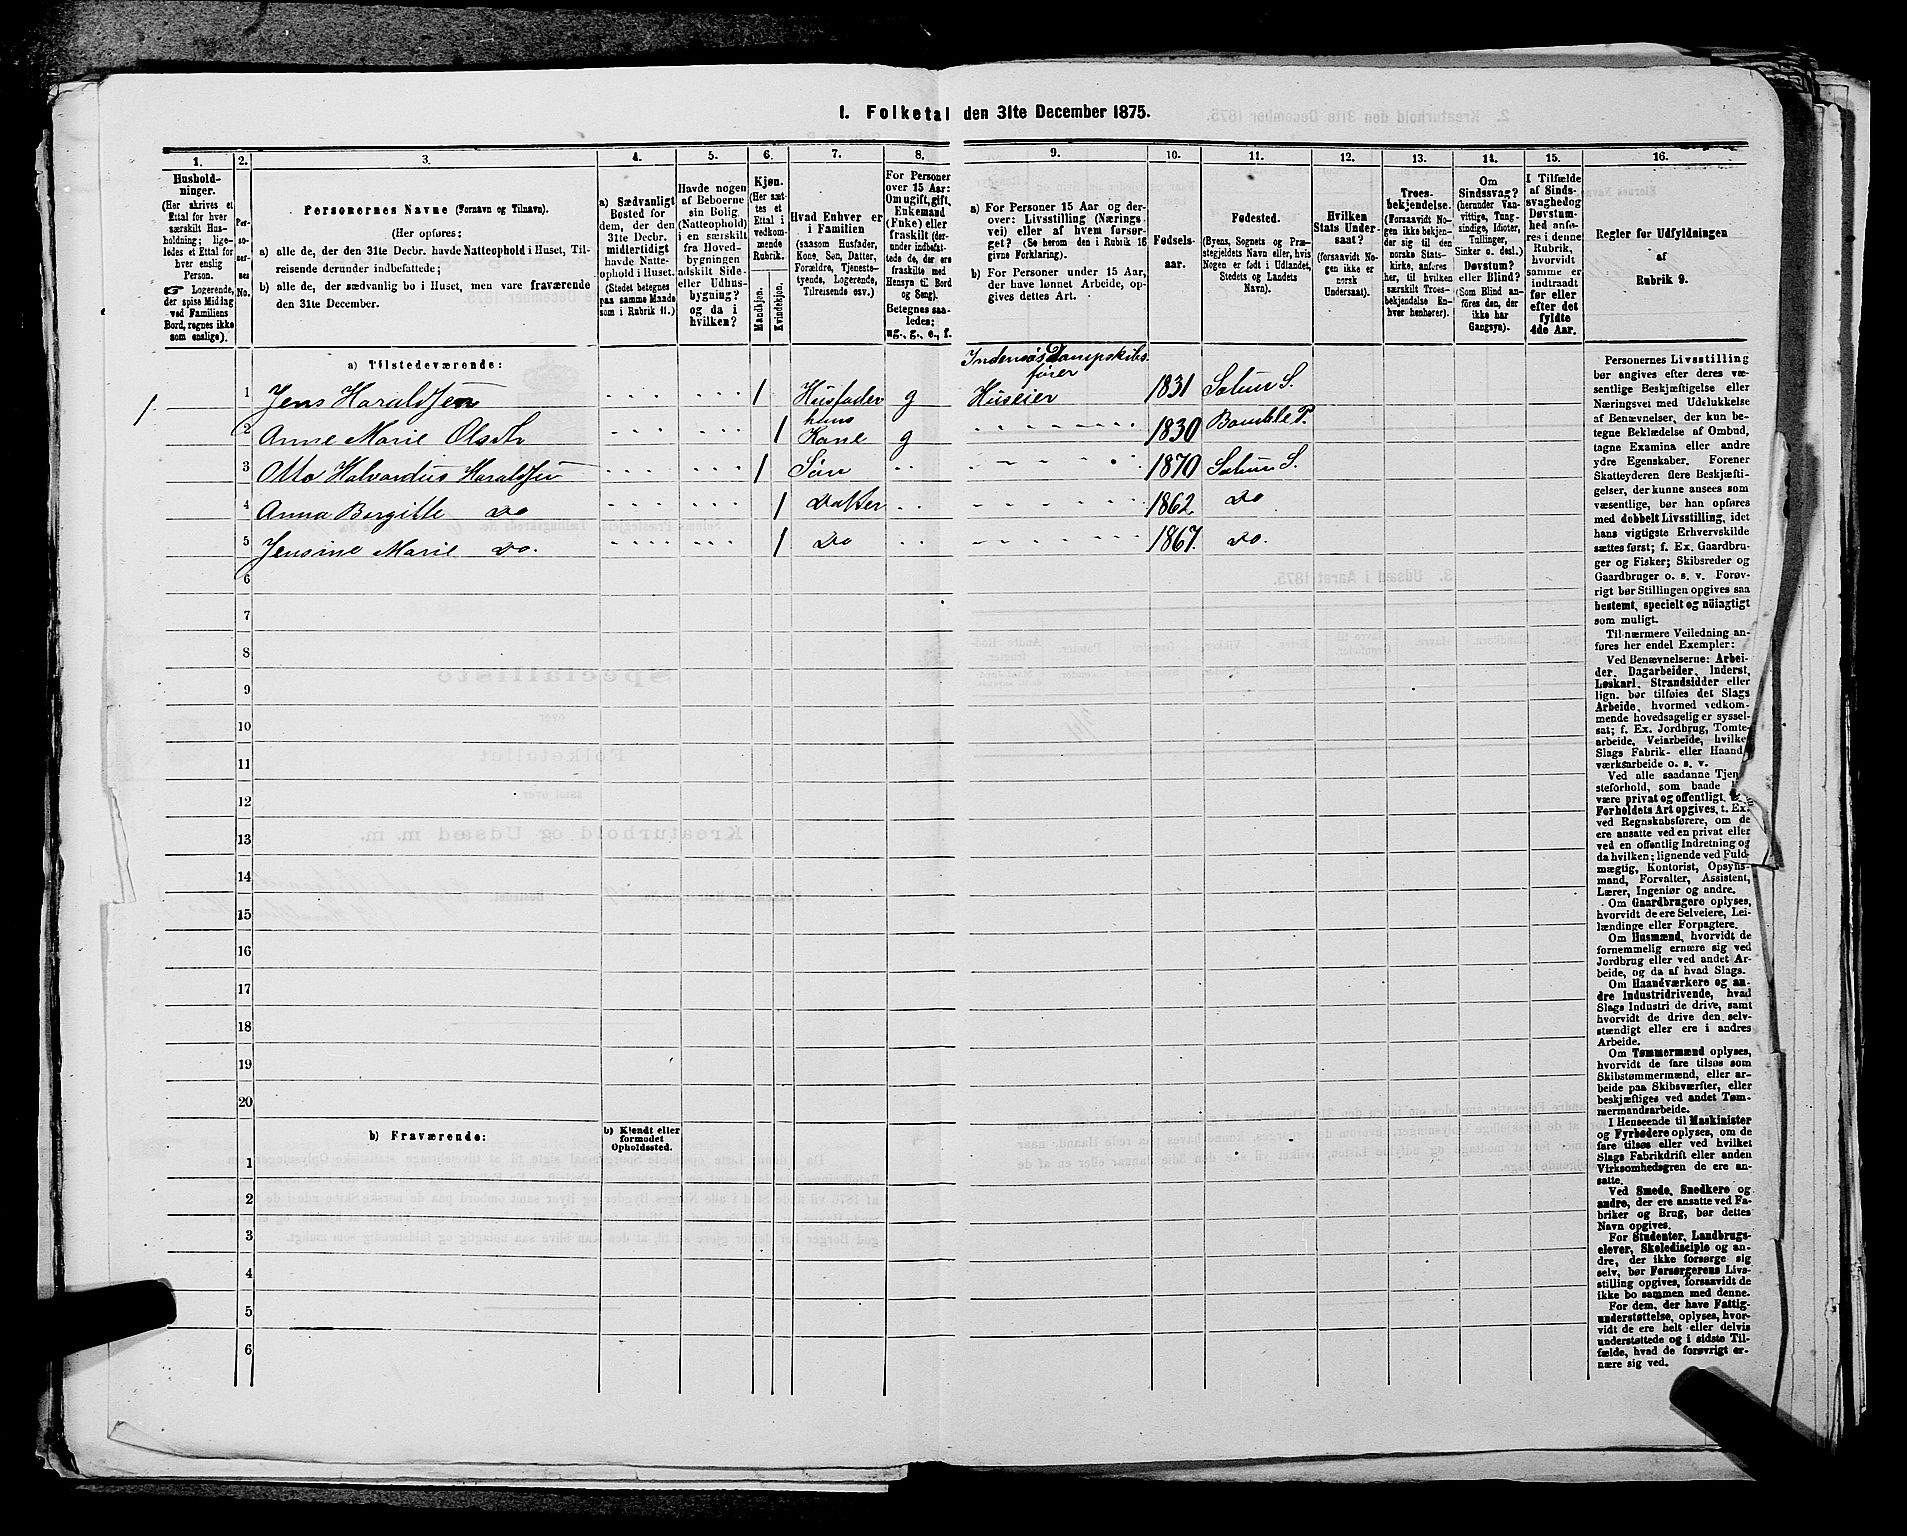 1. Folketal den 31te December 1875.
1. 2. 3. 4. 5. 6. 7. 8. 9. 10. 11. 12. 13. 14. 15. 16.
Hushold-
ninger.
(Her skrives et
Ettal for hver
særskilt Hus-
holdning; lige-
ledes et Ettal for
hver enslig
Person.
☞ Logerende,
der spise Middag
ved Familiens
Bord, regnes ikke
som enslige).
Per-
so-
ner-
nes
No.
Personernes Navne (Fornavn og Tilnavn).
(Her opføres:
a) alle de, der den 31te Decbr. havde Natteophold i Huset, Til-
reisende derunder indbefattede;
b) alle de, der sædvanlig bo i Huset, men vare fraværende
den 31te December.
a) Sædvanligt
Bosted for
dem, der den
31te Decbr.
midlertidigt
havde Natte-
ophold i Huset.
(Stedet betegnes
paa samme Maade
som i Rubrik 11.)
Havde nogen
af Beboerne
sin Bolig
(Natteophold)
i en særskilt
fra Hoved-
bygningen
adskilt Side-
eller Udhus-
bygning?
og da i
hvilken?
Kjøn.
(Her sæt-
tes et
Ettal i
vedkom-
mende
Rubrik.
Mandkjøn.
Kvindekjøn.
Hvad Enhver er
i Familien
(saasom Husfader,
Kone, Søn, Datter,
Forældre, Tjeneste-
tyende, Logerende,
Tilreisende osv.)
For Personer
over 15 Aar:
Om ugift, gift,
Enkemand
(Enke) eller
fraskilt (der-
under indbefat-
tede de, der ere
fraskilte med
Hensyn til Bord
og Seng).
Betegnes saa-
ledes:
ug., g., e., f.
a) For Personer 15 Aar og der-
over: Livsstilling (Nærings-
vei) eller af hvem forsør-
get? (Se herom den i Rubrik 16
givne Forklaring).
b) For Personer under 15 Aar,
der have lønnet Arbeide, op-
gives dettes Art.
Fødsels-
aar.
Fødested.
(Byens, Sognets og Præ-
stegjeldets Navn eller, hvis
Nogen er født i Udlandet,
Stedets og Landets
Navn).
Hvilken
Stats Under-
saat?
(forsaavidt No-
gen ikke er
norsk
Undersaat).
Troes-
bekjendelse.
(Forsaavidt No-
gen ikke bekjen-
der sig til den
norske Stats-
kirke, anføres
her, til hvilken
særskilt Troes-
bekjendelse En-
hver henhører).
Om
Sindssvag?
(herunder Van-
vittige, Tung-
sindige, Idioter,
Tullinger,
Sinker o. desl.).
Døvstum?
eller Blind?
(Som Blind an-
føres den, der
ikke har
Gangsyn).
I Tilfælde
af Sinds-
svaghed og
Døvstum-
hed anfø-
res i denne
Rubrik,
hvorvidt
samme er
indtraadt
før eller
efter det
fyldte
4de Aar.
Regler for Udfyldningen
af
Rubrik 9.
a) Tilstedeværende:
Indensøs Dampskibs
fører
1 1 Jens Haraldsen 1 Husfader g Huseier 1831 Solum S.
hans
2 Anne Marie Olsdtr 1 Kone g 1830 Bamble P.
3 Otto Halvardus Haraldsen 1 Søn 1870 Solum S.
4 Anna Bergitte Do 1 Datter 1862 Do
5 Jensine Marie Do. 1 Do 1867. Do.
6
7
8
9
10
11
12
13
14
15
16
17
18
19
20
b) Fraværende:
b) Kjendt eller
formodet
Opholdssted.
1
2
3
4
5
6
Personernes Livsstilling
bør angives efter deres væ-
sentlige Beskjæftigelse eller
Næringsvei med Udelukkelse
af Benævnelser, der kun be-
tegne Beklædelse af Ombud,
tagne Examina eller andre
ydre Egenskaber. Forener
Skatteyderen flere Beskjæfti-
gelser, der kunne ansees som
væsentlige, bør han opføres
med dobbelt Livsstilling, idet
hans vigtigste Erhvervskilde
sættes først; f. Ex. Gaardbru-
ger og Fisker; Skibsreder og
Gaardbruger o. s. v. Forøv-
rigt bør Stillingen opgives saa
bestemt, specielt og nøiagtigt
som muligt.
Til nærmere Veiledning an-
føres her endel Exempler:
Ved Benævnelserne: Arbei-
der, Dagarbeider, Inderst,
Løskarl, Strandsidder eller
lign. bør tilføies det Slags
Arbeide, hvormed vedkom-
mende hovedsagelig er syssel-
sat; f. Ex. Jordbrug, Tomte-
arbeide, Veiarbeide, hvilket
Slags Fabrik- eller Haand-
værksarbeide o. s. v.
Ved alle saadanne Tjene-
steforhold, som baade
være privat og offentligt,
Forholdets Art opgives, t. Ex.
ved Regnskabsførere, om de
ere ansatte ved en privat eller
ved en offentlig Indretning og
da hvilken; lignende ved Fuld-
mægtig, Kontorist, Opsyns-
mand, Forvalter, Assistent,
Lærer, Ingeniør og andre.
Om Gaardbrugere oplyses,
hvorvidt de ere Selveiere, Lei-
lændinge eller Forpagtere.
Om Husmænd, hvorvidt de
fornemmelig ernære sig ved
Jordbrug eller ved andet Ar-
beide, og da af hvad Slags.
Om Haandværkere og an-
dre Industridrivende, hvad
Slags Industri de drive, samt
hvorvidt de drive den selv-
stændigt eller ere i andres
Arbeide.
Om Tømmermænd oplyses,
hvorvidt de fare tilsøs som
Skibstømmermænd, eller ar-
beide paa Skibsværfter, eller
beskjæftiges ved andet Tøm-
mermandsarbeide.
I Henseende til Maskinister
og Fyrbødere oplyses, om de
fare tilsøs eller ved hvilket
Slags Fabrikdrift eller anden
Virksomhedsgren de ere an-
satte.
Ved Smede, Snedkere og
andre, der ere ansatte ved Fa-
briker og Brug, bør dettes
Navn opgives.
For Studenter, Landbrugs-
elever, Skoledisciple og an-
dre, der ikke forsørge sig
selv, bør Forsørgerens Livs-
stilling opgives, forsaavidt de
ikke bo sammen med denne.
For dem, der have Fattig-
understøttelse, oplyses, hvor-
vidt de ere helt eller delvis
understøttede og i sidste Til-
fælde, hvad de forøvrigt er-
nære sig ved.